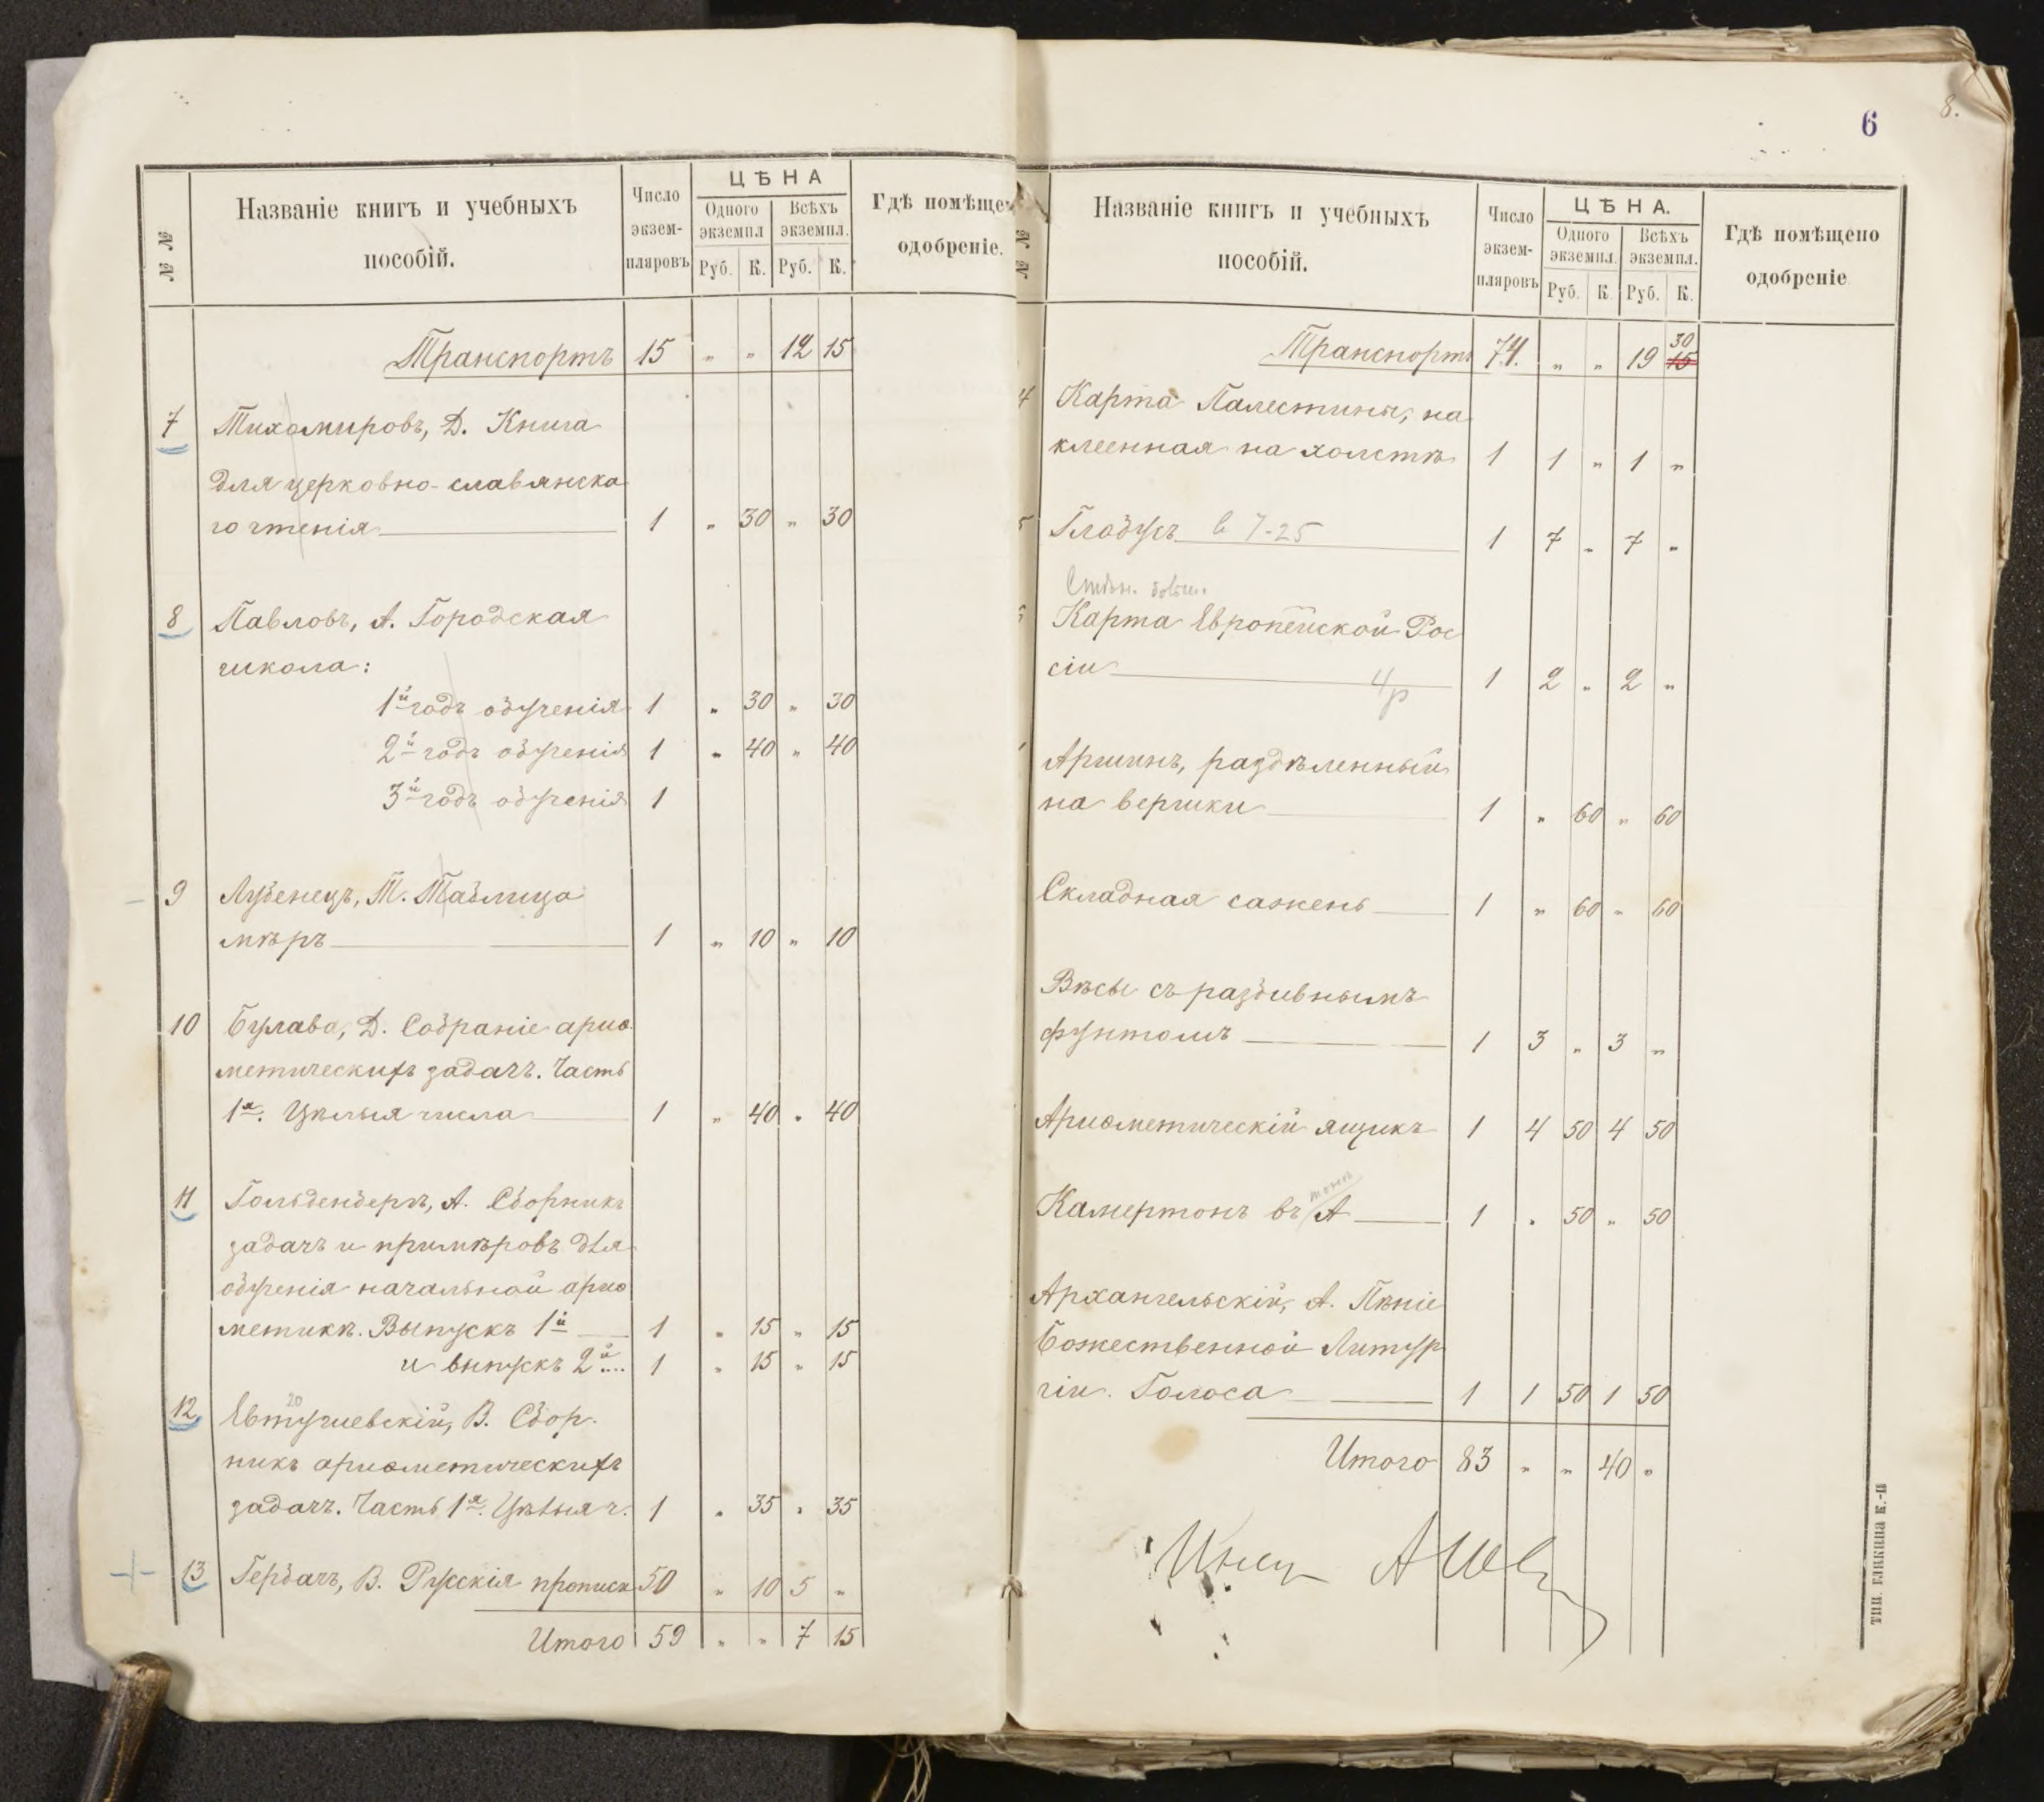 № №
Названіе книгъ и учебныхъ
пособій.
Число
экзем-
пляровъ
ЦѢНА
Одного
экземпл
Всѣхъ
экземпл.
Руб. К. Руб. К.
Гдѣ помѣще
одобреніе.
Транспортъ 15 " " 12 15
7 Тихомировъ, Д. Книга
для церковно-славянска
го чтенія 1 " 30 " 30
8 Павловъ, А. Городская
школа:
1й годъ обученія 1 " 30 " 30
2й годъ обученія 1 " 40 " 40
3й годъ обученія 1
9 Лубенецъ, Т. Таблица
мѣръ 1 " 10 " 10
10 Булава, Д. Собраніе ариѳ
метическихъ задачъ. Часть
1я. Цѣлыя числа 1 " 40 " 40
11 Гольденберъ, А. Сборникъ
задачъ и примѣровъ для
обученія начальной ариѳ
метикѣ. Выпускъ 1й 1 " 15 " 15
и выпускъ 2й.... 1 " 15 " 15
20
12 Евтушевскій, В. Сбор.
никъ ариѳметическихъ
задачъ. Часть 1я. Цѣлыя ч. 1 " 35 " 35
13 Гербачъ, В. Русскія прописи 50 " 10 5 "
Итого 59 " " 7 15
6
8.
№ №
Названіе книгъ и учебныхъ
пособій.
Число
экзем-
пляровъ
ЦѢНА.
Одного
экземпл.
Всѣхъ
экземпл.
Руб. К. Руб. К.
Гдѣ помѣщено
одобреніе
30
Транспортъ 74. " " 19 15
4 Карта Палестины, на
клеенная на холстѣ 1 1 " 1 "
5 Глобусъ в 7-25 1 7 " 7 "
Карта Европейской Рос
сіи 4р 1 2 " 2 "
Аршинъ, раздѣленный
на вершки 1 " 60 " 60
Складная сажень 1 " 60 " 60
Вѣсы съ разбивнымъ
фунтомъ 1 3 " 3 "
Ариѳметическій ящикъ 1 4 50 4 50
тонъ
Камертонъ въ А 1 " 50 " 50
Архангельскій, А. Пѣніе
Божественной Литур
гіи. Голоса 1 1 50 1 50
Итого 83 " " 40 "
ТИП. ГЛИКИНА К.-П